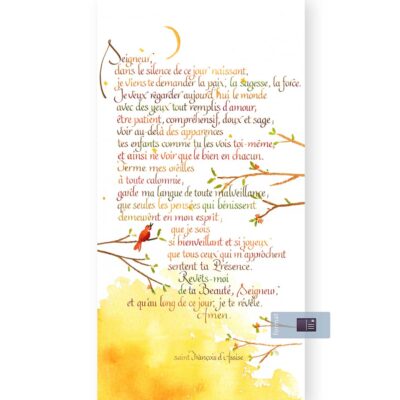 Seigneur,
dans le silence de ce jour naissant,
je viens te demander la paix, la sagesse, la force.
Je veux regarder aujourd'hui le monde
avec des yeux tout remplis d'amour,
être patient, compréhensif, doux et sage;
voir au-delà des apparences
tes enfants comme tu les vois toi-même,
et ainsi ne voir que le bien en chacun.
Ferme mes oreilles
à toute calomnie,
garde ma langue de toute malveillance,
que seules les pensées qui bénissent
demeurent en mon esprit,
que je sois
si bienveillant et si joyeux
que tous ceux qui m'approchent
sentent ta Présence.
Revêts-moi
de ta Beauté, Seigneur,
et qu'au long de ce jour, je te révèle.
Amen.
saint François d'Assise